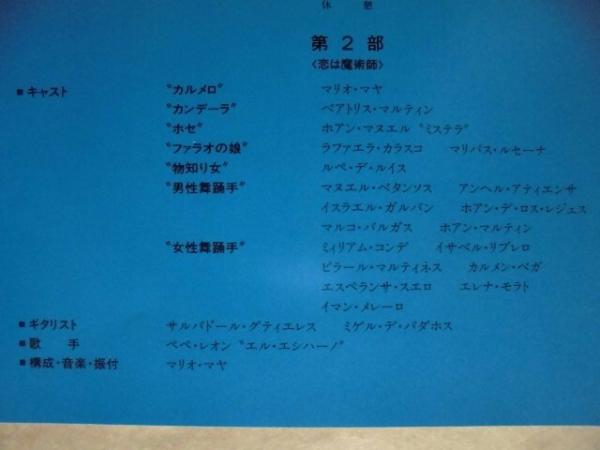 休憩
第2部
〈恋は魔術師〉
■キャスト 〝カルメロ〟 マリオ・マヤ
〝カンデーラ〟 ベアトリス・マルティン
〝ホセ〟 ホアン・マヌエル〝ミステラ〟
〝ファラオの娘〟 ラファエラ・カラスコ マリバス・ルセーナ
〝物知り女〟 ルペ・デ・ルイス
〝男性舞踊手〟 マヌエル・ベタンソス アンヘル・アティエンサ
イスラエル・ガルバン ホアン・デ・ロス・レジェス
マルコ・バルガス ホアン・マルティン
〝女性舞踊手〟 ミィリアム・コンデ イサベル・リブレロ
ピラール・マルティネス カルメン・ベガ
エスペランサ・スエロ エレナ・モラト
イマン・メレーロ
■ギタリスト サルバドール・グティエレス ミゲル・デ・バダホス
■歌手 ペペ・レオン〝エル・エシハーノ〟
■構成・音楽・振付 マリオ・マヤ